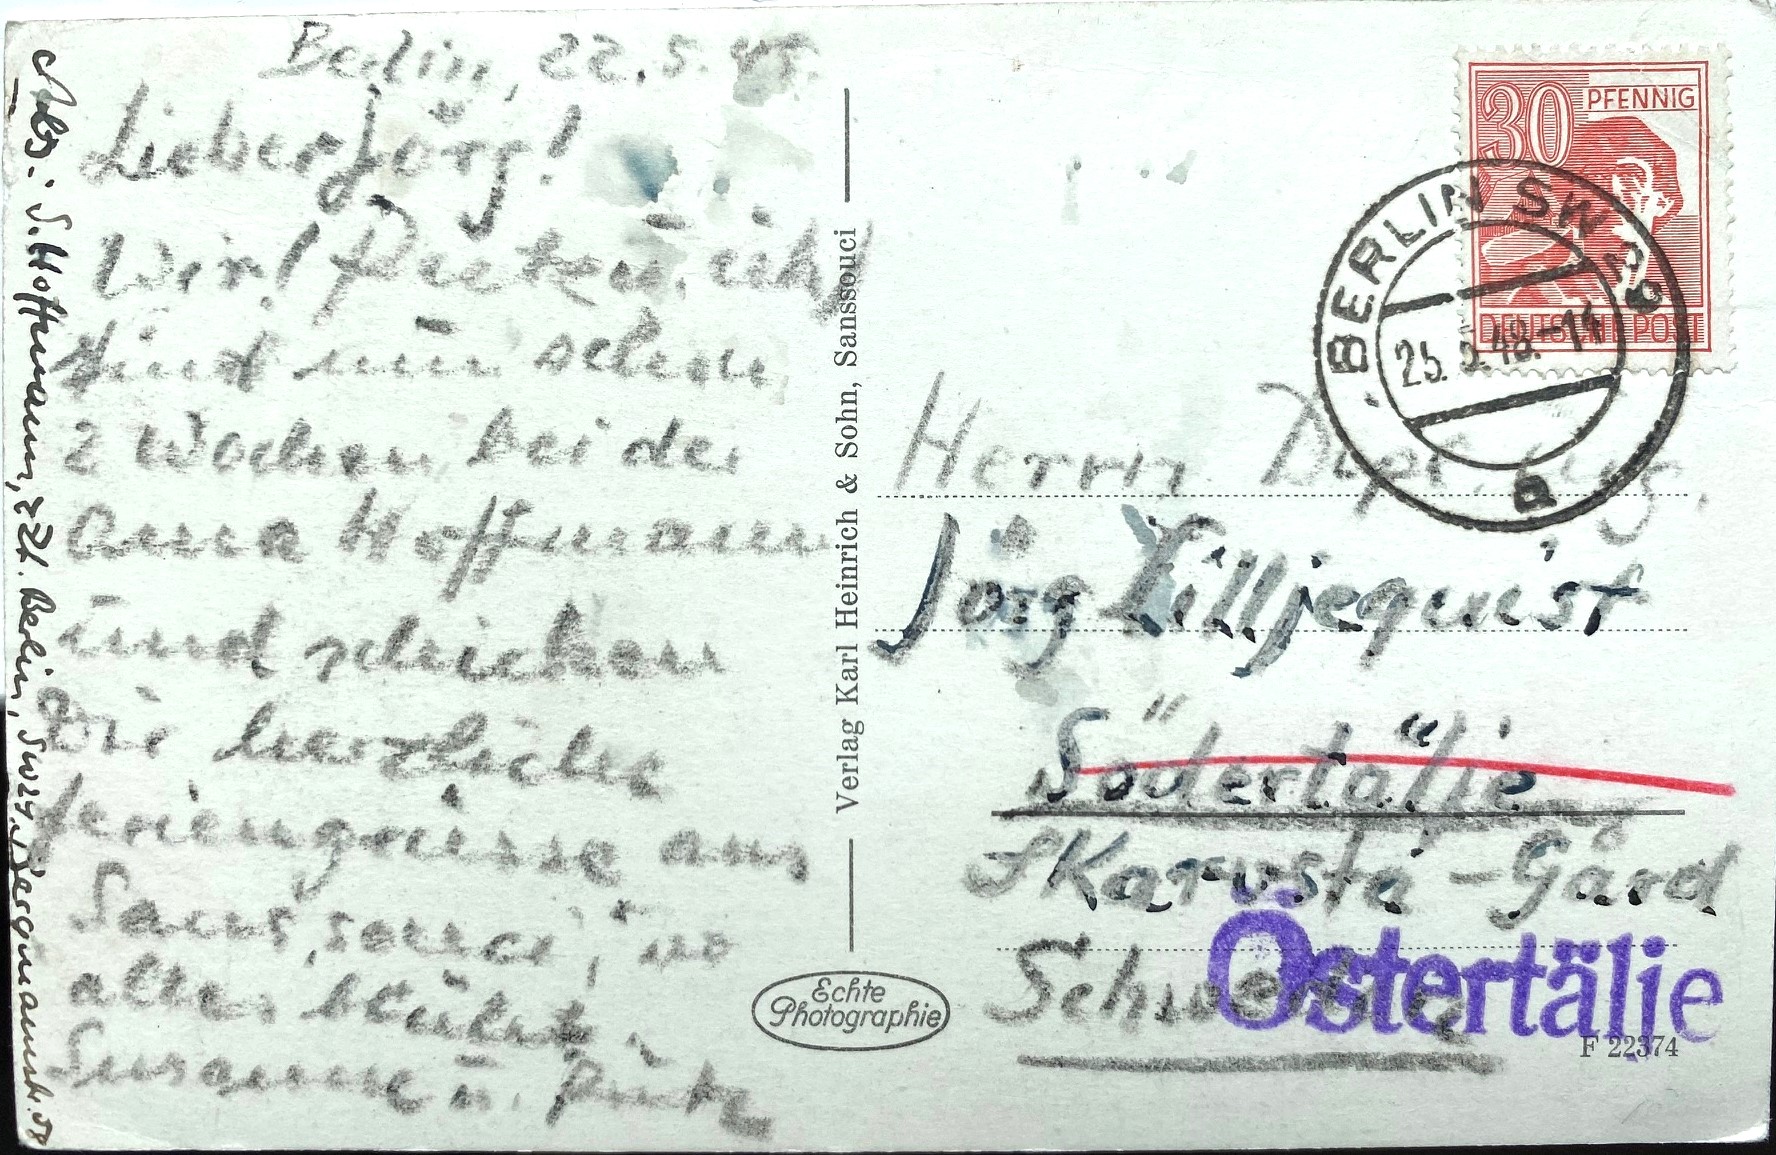 Berlin, 22.5.48.
Lieber Jörg!
Wir! Putex u. ich!
sind nun schon
2 Wochen bei der
Oma Hoffmann
und schicken
Dir herzliche
Feriengrüsse aus
Sanssouci, wo
alles blüht.
Susanne u.
Abs.: S. Hoffmann, z.Zt. Berlin, SW29, Bergmannstr. 58
Verlag Karl Heinrich & Sohn, Sanssouci
Echte
Photographie
30 PFENNIG
DEUTSCHE POST
BERLIN SW 29
25.5.48.-14
a
Herrn Dipl. Ing.
Jörg Lilljequist
Södertälje
Karvsta-Gård
Schweden
Östertälje
F 22374